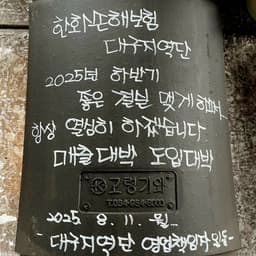 한화손해보험
대구지역단
2025년 하반기
좋은 결실 맺게 하소서
항상 열심히 하겠습니다.
매출대박 도입대박
고령기와
T.054-954-8000
2025. 8. 11. 월.
- 대구지역단 영업책임자 일동 -